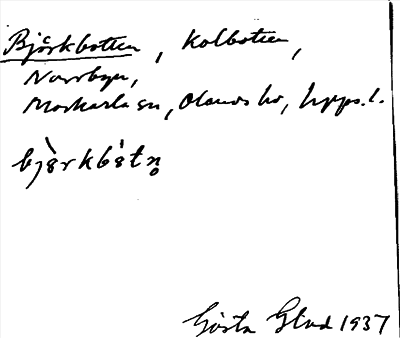 Björkbotten, Kolbotten,
Norrbyn,
Morkarla sn, Olands hd, Upps. l.
bjòrkbót
Gösta Glad 1937